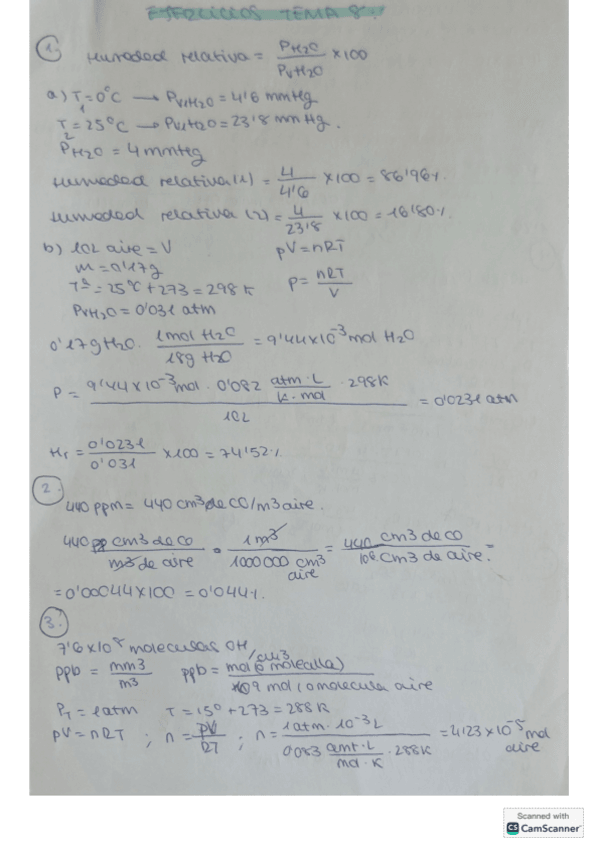 EJERCICIOS TEMA 8.
1. Humedad relativa = PH2O / PVH2O x100
a) T1=0°C → PVH2O = 4'6 mmHg
T2=25°C → PVH2O = 23'8 mmHg.
PH2O = 4 mmHg
Humedad relativa (1) = 4 / 4'6 x100 = 86'96%.
Humedad relativa (2) = 4 / 23'8 x100 = 16'80%.
b) 10L aire = V pV=nRT
m=0'17g
Tª=25°C+273=298K P= nRT / V
PVH2O=0'031 atm
0'17g H2O. 1mol H2O / 18g H2O = 9'44x10-3 mol H2O
P = 9'44x10-3 mol · 0'082 atm·L / K·mol · 298K / 10L = 0'0231 atm
Hr = 0'0231 / 0'031 x100 = 74'52%.
2.
440 ppm = 440 cm3 de CO/m3 aire.
440 cm3 de CO / m3 de aire · 1m3 / 1000000 cm3 aire = 440 cm3 de CO / 106 cm3 de aire =
= 0'00044x100 = 0'044%.
3.
7'6x108 moleculas OH/cm3
ppb = mm3 / m3 ppb = mol (o molecula) / 109 mol (o molecula aire
PT = 1atm T=15°+273=288K
pV=nRT ; n= pV / RT ; n= 1atm·10-3L / 0'083 amt·L / mol·K · 288K = 4'123x10-5 mol aire
Scanned with
CS CamScanner